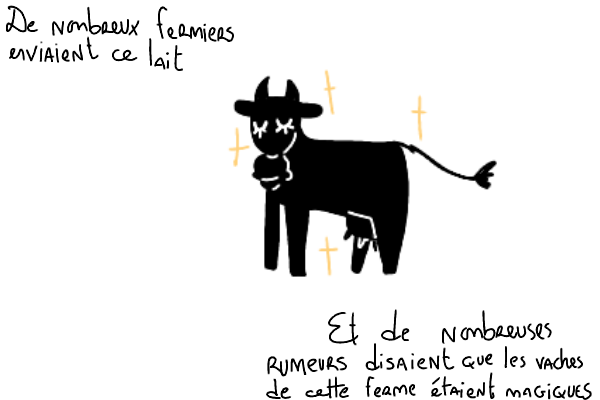 De nombreux fermiers
enviaient ce lait
Et de nombreuses
rumeurs disaient que les vaches
de cette ferme étaient magiques